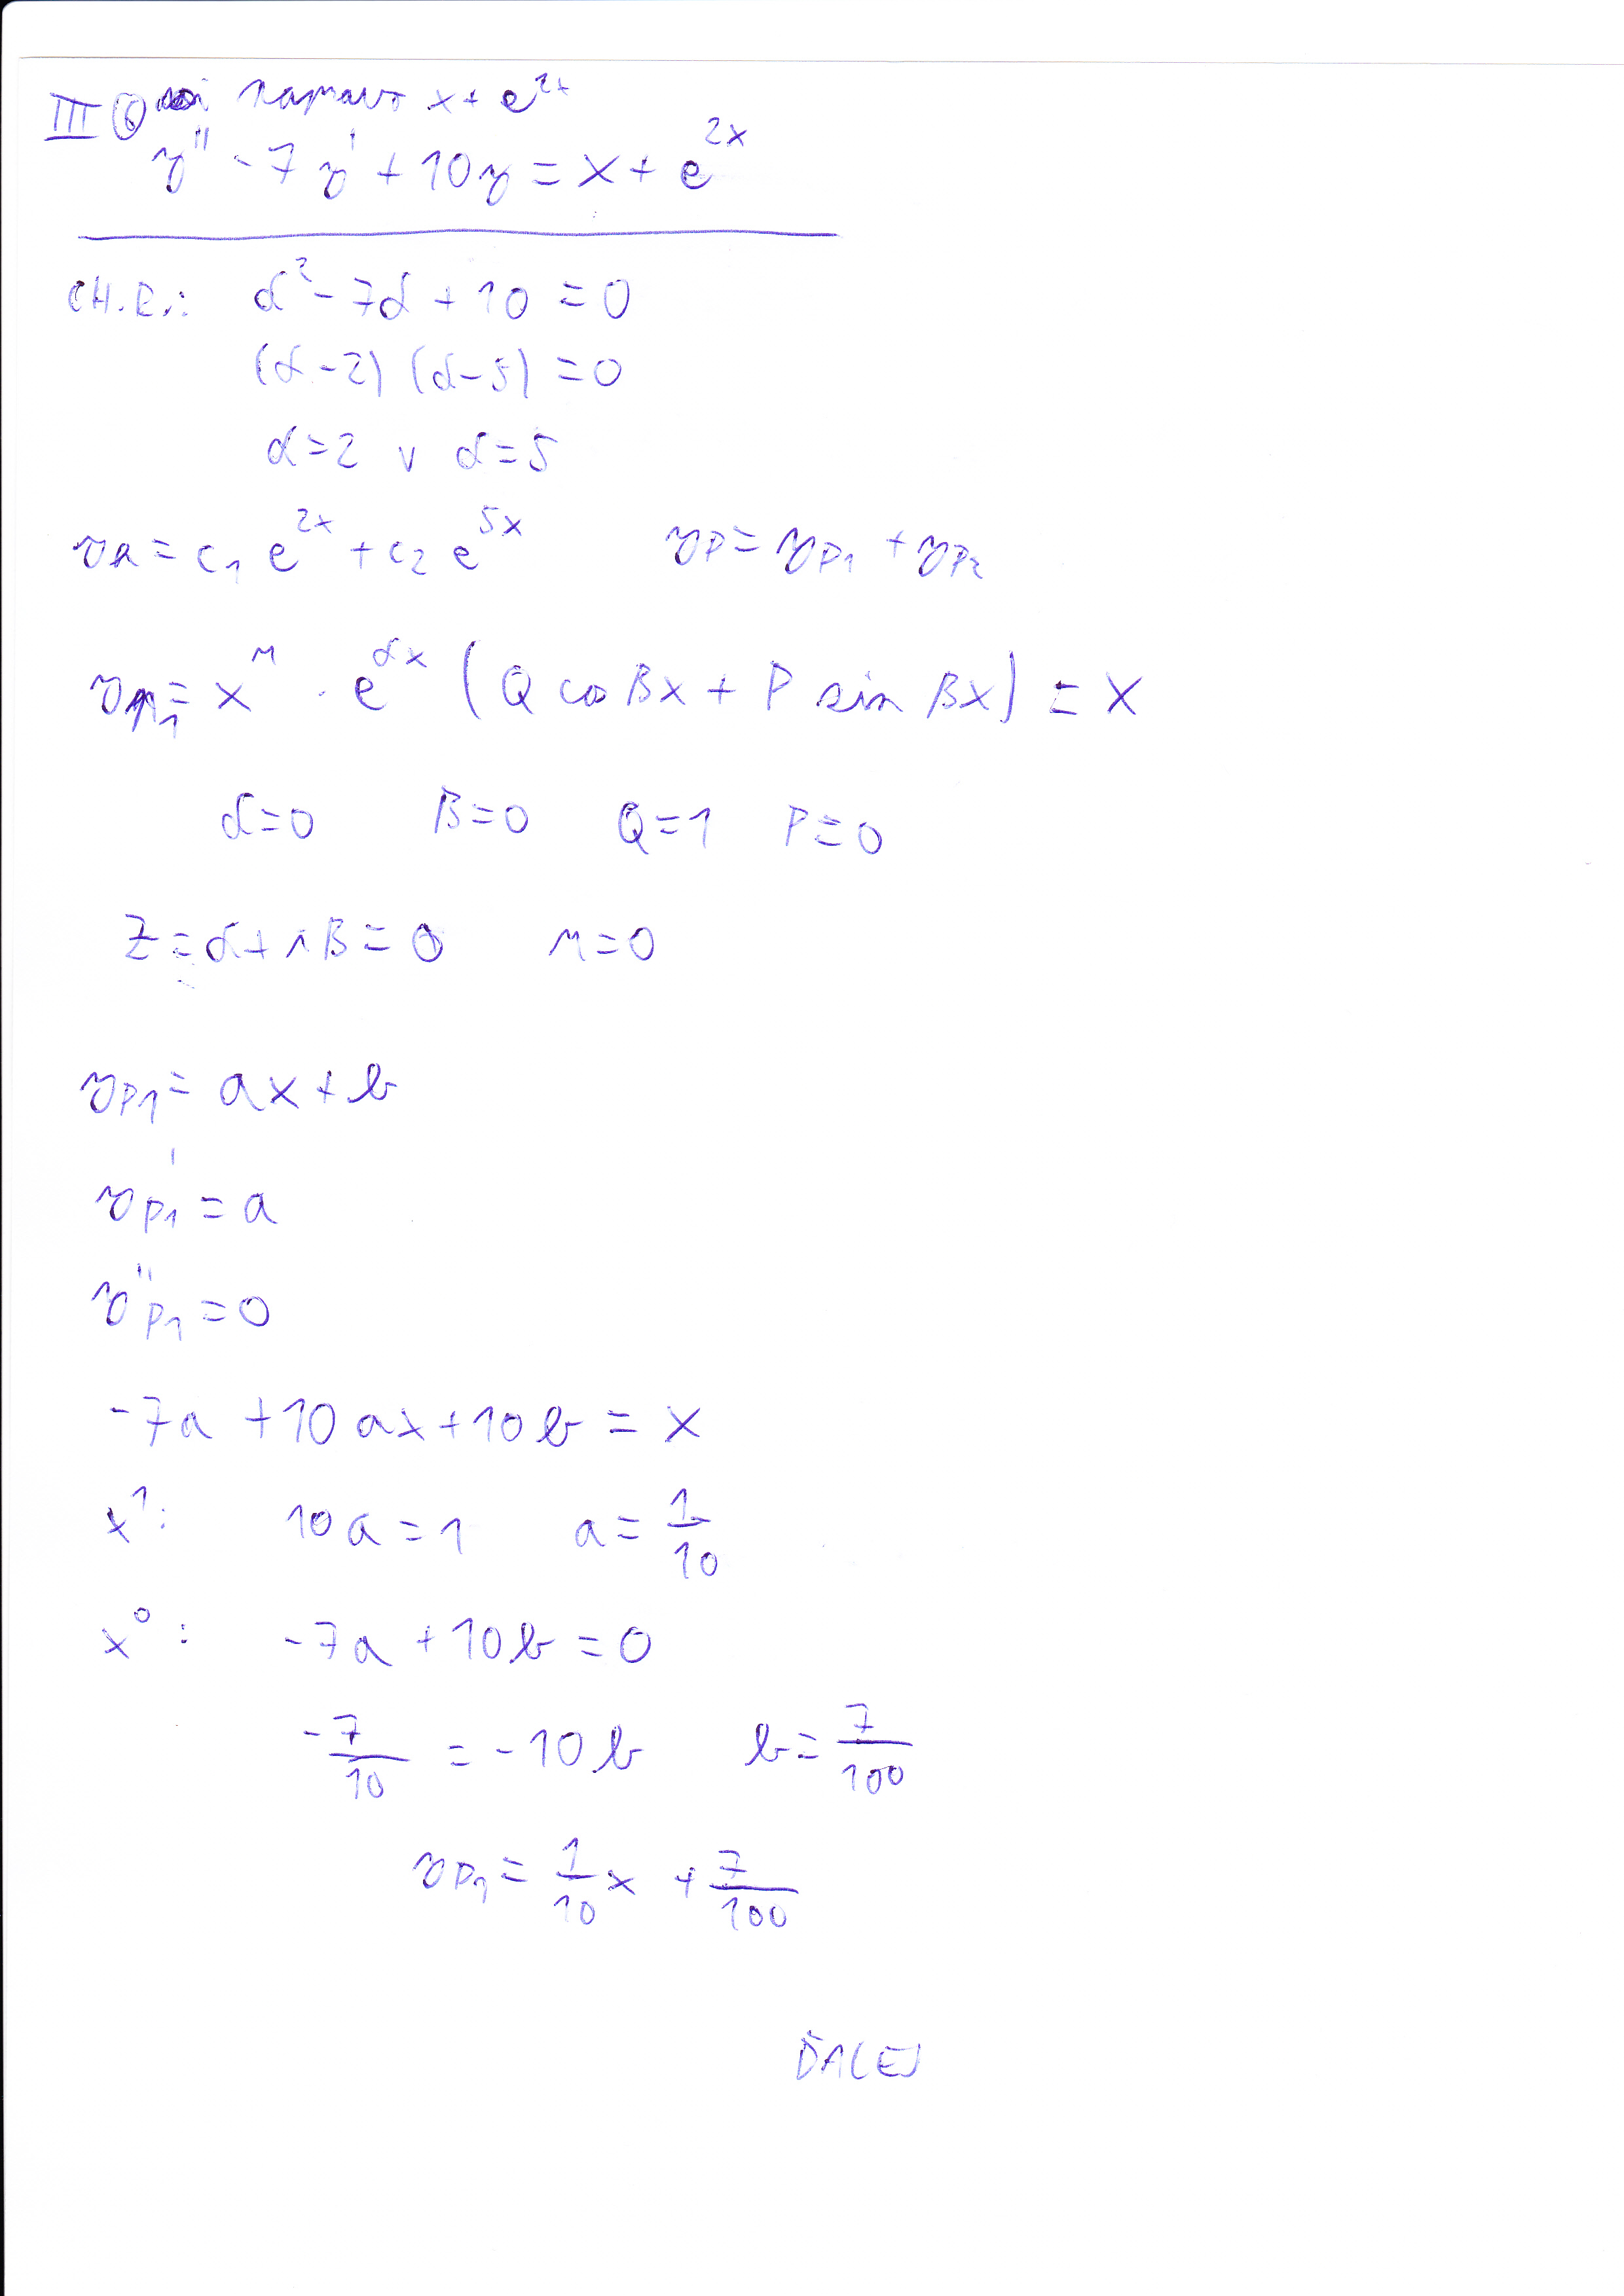 III ⑥ napravo x + e^2x
y'' - 7y' + 10y = x + e^2x
CH.R.: α² - 7α + 10 = 0
(α - 2) (α - 5) = 0
α = 2 v α = 5
ya = c₁ e^2x + c₂ e^5x yp = yp₁ + yp₂
yp₁ = x^n · e^αx (Q cos Bx + P sin Bx) = x
α = 0 B = 0 Q = 1 P = 0
Z = α + iB = 0 n = 0
yp₁ = ax + b
yp₁' = a
y''p₁ = 0
-7a + 10ax + 10b = x
x¹: 10a = 1 a = 1/10
x⁰: -7a + 10b = 0
-7/10 = -10b b = 7/100
yp₁ = 1/10 x + 7/100
ĎALEJ